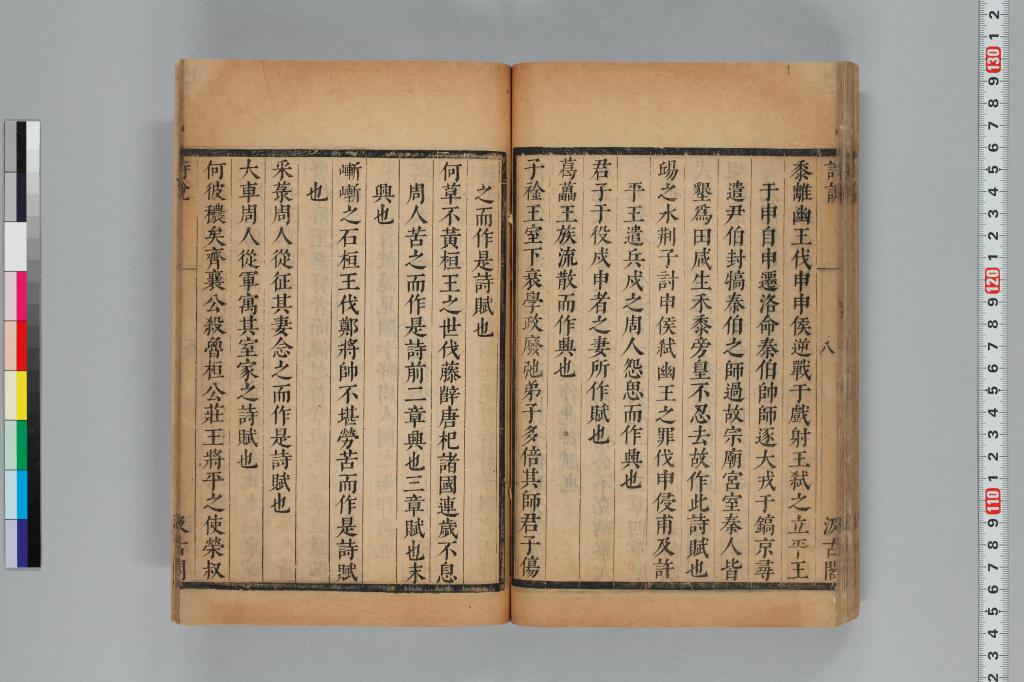 詩說
八
汲古閣
黍離幽王伐申申侯逆戰于戲射王弑之立平王
于申自申遷洛命秦伯帥師逐大戎于鎬京尋
遣尹伯封犒秦伯之師過故宗廟宮室秦人皆
墾爲田咸生禾黍旁皇不忍去故作此詩賦也
昜之水荆子討申侯弑幽王之罪伐申侵甫及許
平王遣兵戍之周人怨思而作興也
君子于役戍申者之妻所作賦也
葛藟王族流散而作興也
子衿王室下衰學政廢弛弟子多倍其師君子傷
之而作是詩賦也
何草不黃桓王之世伐滕薛唐杞諸國連歲不息
周人苦之而作是詩前二章興也三章賦也末
興也
嶃嶃之石桓王伐鄭將帥不堪勞苦而作是詩賦
也
采菉周人從征其妻念之而作是詩賦也
大車周人從軍寓其室家之詩賦也
何彼穠矣齊襄公殺魯桓公莊王將平之使榮叔
詩說